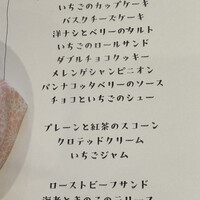 いちごのカップケーキ
バスクチーズケーキ
洋ナシとベリーのタルト
いちごのロールサンド
ダブルチョコクッキー
メレンゲシャンピニオン
パンナコッタベリーのソース
チョコといちごのシュー
プレーンと紅茶のスコーン
クロテッドクリーム
いちごジャム
ローストビーフサンド
海老ときのこのテリーヌ